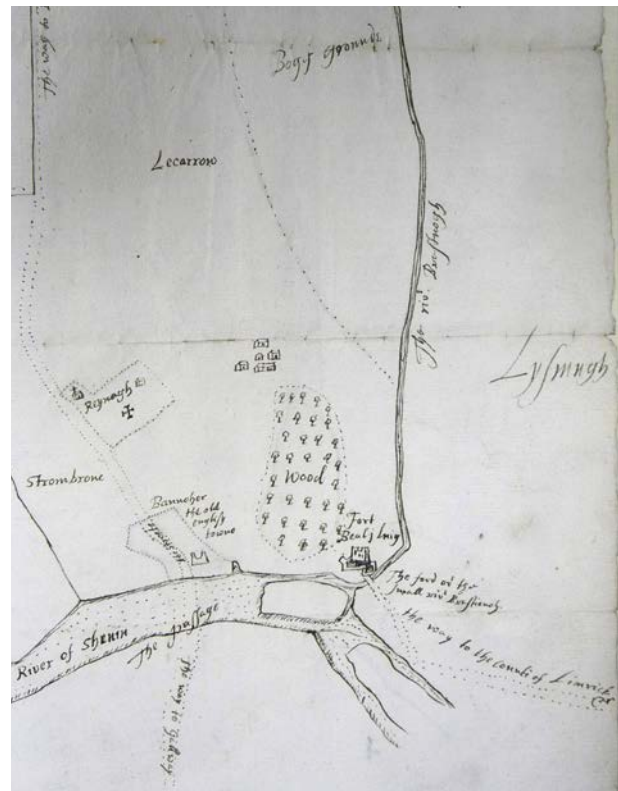 Bogy Grounde
Lecarrow
The rivr Brusnogh
Lysmagh
Reynagh
Strombrone
Wood
Bannoher
the old
english
towne
Fort
The ford or the
small rivr
the way to the counti of Limrick
River of Shenin
The passage
The way to Gallway